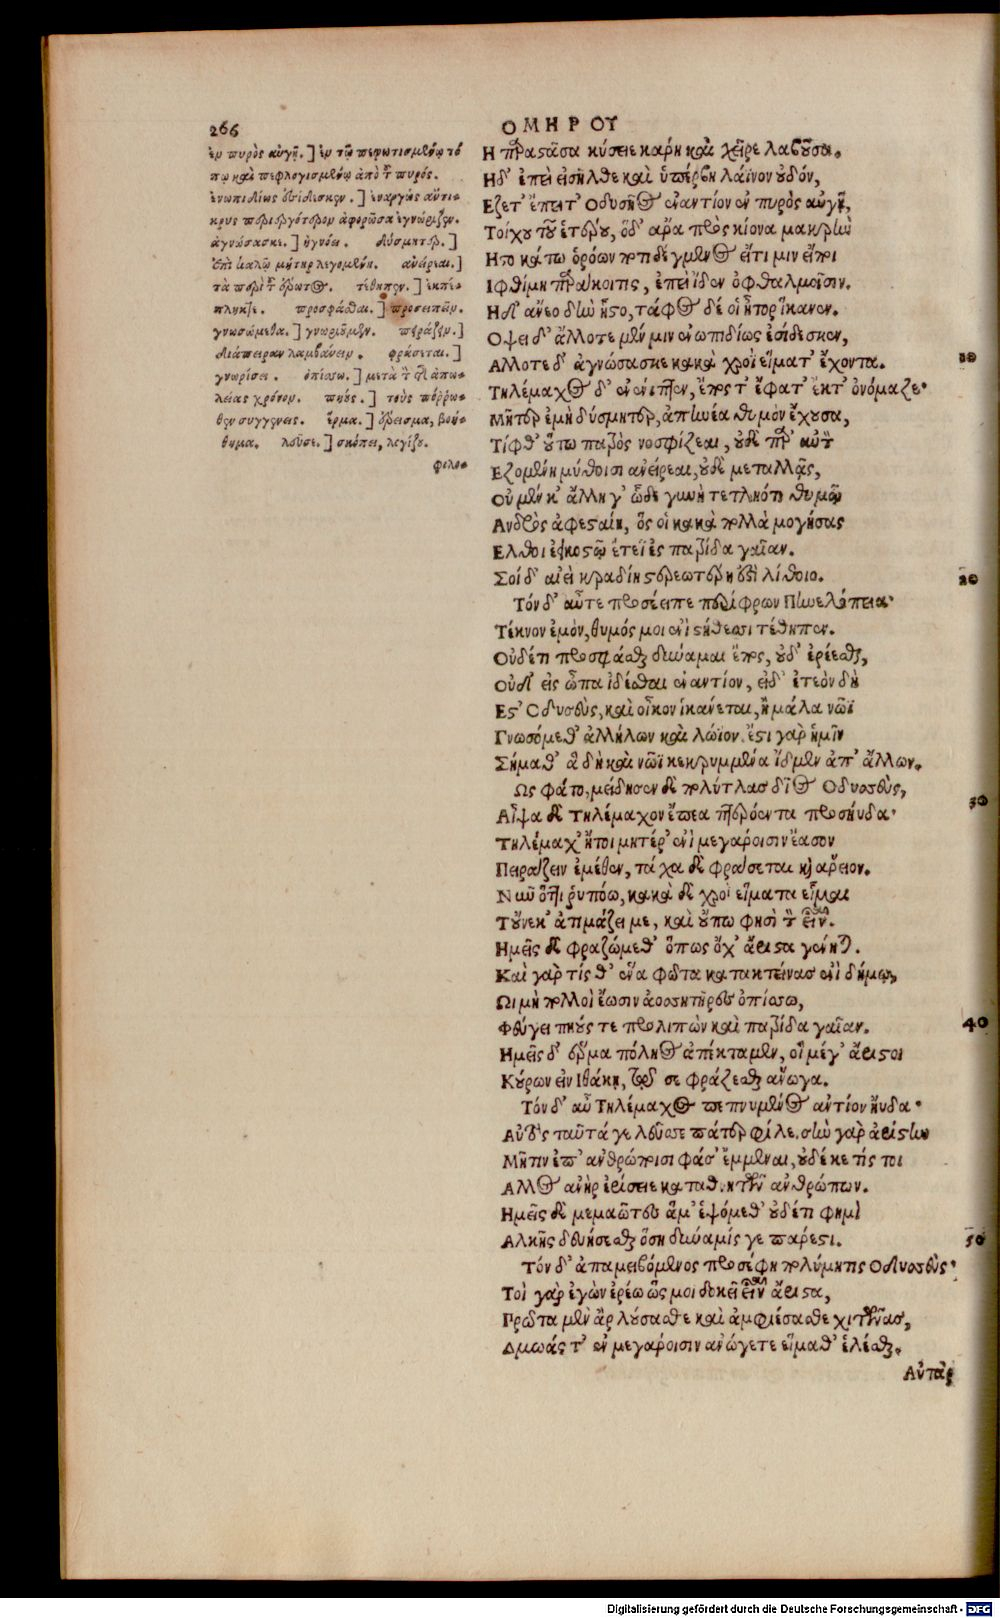 266
ΟΜΗΡΟΥ
ἐν πυρὸς αὐγῇ.] ἐν τῷ πεφωτισμένῳ τό
πῳ καὶ πεφλογισμένῳ ἀπὸ τοῦ πυρός.
ἐνωπιδίως ἐσίδεσκεν.] ἐναργῶς ἄντι-
κρυς περιεργότερον ἀφορῶσα ἐγνώριζεν.
ἀγνώσασκε.] ἠγνόει. δύσμητερ.]
ἐπὶ κακῷ μήτηρ λεγομένη. ἀνείρεαι.]
τὰ περὶ τοῦ ἔρωτος. τέθηπεν.] ἐκπέ-
πληκται. προσφάσθαι.] προσειπεῖν.
γνωσώμεθα.] γνωριοῦμεν. πειράζειν.]
διάπειραν λαμβάνειν. φράσεται.]
γνωρίσει. ὀπίσσω.] μετὰ τὸν τῆς ἀπω-
λείας χρόνον. πηούς.] τοὺς πόρρω-
θεν συγγενεῖς. ἕρμα.] ἔρεισμα, βοή-
θημα. λεῦσε.] σκόπει, λεγίζου.
φιλο-
Η παραστᾶσα κύσειε κάρη καὶ χεῖρε λαβοῦσα.
Ηδ' ἐπεὶ εἰσῆλθε καὶ ὑπέρβη λάϊνον οὐδόν,
Εζετ' ἔπειτ' Οδυσῆος ἐναντίον ἐν πυρὸς αὐγῇ,
Τοίχου τοῦ ἑτέρου, ὁδ' ἄρα πρὸς κίονα μακρὴν
Ηστο κάτω ὁρόων ποτιδέγμενος εἴτι μιν εἴποι
Ιφθίμη παράκοιτις, ἐπεὶ ἴδεν ὀφθαλμοῖσιν.
Ηδ' ἄνεο δὴν ἧστο, τάφος δέ οἱ ἦτορ ἵκανεν.
Οψει δ' ἄλλοτε μέν μιν ἐνωπιδίως ἐσίδεσκεν,
Αλλοτε δ' ἀγνώσασκε κακὰ χροῒ εἵματ' ἔχοντα.
10
Τηλέμαχος δ' ἐνένιπεν, ἔπος τ' ἔφατ' ἔκτ' ὀνόμαζε·
Μῆτερ ἐμὴ δύσμητερ, ἀπηνέα θυμὸν ἔχουσα,
Τίφθ' οὕτω πατρὸς νοσφίζεαι, οὐδὲ παρ' αὐτὸν
Εζομένη μύθοισι ἀνείρεαι, οὐδὲ μεταλλᾷς,
Οὐ μέν κ' ἄλλη γ' ὧδε γυνὴ τετληότι θυμῷ
Ανδρὸς ἀφεσταίη, ὅς οἱ κακὰ πολλὰ μογήσας
Ελθοι ἐεικοστῷ ἔτεϊ ἐς πατρίδα γαῖαν.
Σοὶ δ' αἰεὶ κραδίη στερεωτέρη ἐστὶ λίθοιο.
20
Τὸν δ' αὖτε προσέειπε περίφρων Πηνελόπεια·
Τέκνον ἐμὸν, θυμός μοι ἐνὶ στήθεσσι τέθηπεν.
Οὐδέτι προσφάσθαι δύναμαι ἔπος, οὐδ' ἐρέεσθαι,
Οὐδ' εἰς ὦπα ἰδέσθαι ἐναντίον, εἰδ' ἐτεὸν δὴ
Εστ' Οδυσεὺς, καὶ οἶκον ἱκάνεται, ἦ μάλα νῶϊ
Γνωσόμεθ' ἀλλήλων καὶ λώϊον. ἔστι γὰρ ἡμῖν
Σήμαθ' ἃ δὴ καὶ νῶϊ κεκρυμμένα ἴδμεν ἀπ' ἄλλων.
Ως φάτο, μείδησεν δὲ πολύτλας δῖος Οδυσσεὺς,
30
Αἶψα δὲ Τηλέμαχον ἔπεα πτερόεντα προσηύδα·
Τηλέμαχ' ἤτοι μητέρ' ἐνὶ μεγάροισιν ἔασον
Πειράζειν ἐμέθεν, τάχα δὲ φράσεται καὶ ἄρειον.
Νῦν ὅττι ῥυπόω, κακὰ δὲ χροῒ εἵματα εἷμαι
Τοὔνεκ' ἀτιμάζει με, καὶ οὔπω φησὶ τὸν εἶναι.
Ημεῖς δὲ φραζώμεθ' ὅπως ὄχ' ἄριστα γένηται.
Καὶ γάρ τίς θ' ἕνα φῶτα κατακτείνας ἐνὶ δήμῳ,
Ωι μὴ πολλοὶ ἔωσιν ἀοσσητῆρες ὀπίσσω,
Φεύγει πηούς τε προλιπὼν καὶ πατρίδα γαῖαν.
40
Ημεῖς δ' ἕρμα πόληος ἀπέκταμεν, οἳ μέγ' ἄριστοι
Κούρων εἰν Ιθάκῃ, τάδε σε φράζεσθαι ἄνωγα.
Τὸν δ' αὖ Τηλέμαχος πεπνυμένος ἀντίον ηὔδα·
Αὐτὸς ταῦτά γε λεῦσσε πάτερ φίλε. σὴν γὰρ ἀρίστην
Μῆτιν ἐπ' ἀνθρώποισι φάσ' ἔμμεναι, οὐδέ κε τίς τοι
Αλλος ἀνὴρ ἐρίσειε καταθνητῶν ἀνθρώπων.
Ημεῖς δὲ μεμαῶτες ἅμ' ἑψόμεθ' οὐδέτι φημὶ
Αλκῆς δευήσεσθαι ὅση δύναμίς γε πάρεστι.
50
Τὸν δ' ἀπαμειβόμενος προσέφη πολύμητις Οδυσσεὺς·
Τοὶ γὰρ ἐγὼν ἐρέω ὥς μοι δοκεῖ εἶναι ἄριστα,
Πρῶτα μὲν ἂρ λούσασθε καὶ ἀμφιέσασθε χιτῶνας,
Δμωάς τ' ἐν μεγάροισιν ἀνώγετε εἵμαθ' ἑλέσθαι.
Αὐτὰρ
Digitalisierung gefördert durch die Deutsche Forschungsgemeinschaft - DFG